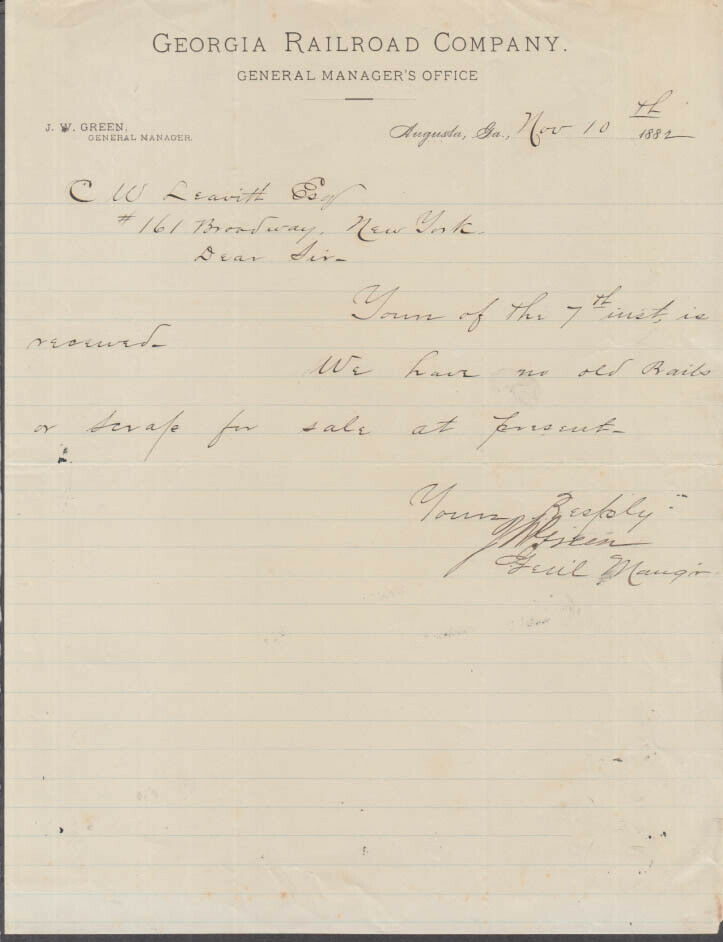 GEORGIA RAILROAD COMPANY.
GENERAL MANAGER'S OFFICE
J. W. GREEN,
GENERAL MANAGER.
Augusta, Ga., Nov 10th 1882
C W Leavitt Esq
# 161 Broadway, New York.
Dear Sir-
Yours of the 7th inst, is
received-
We have no old Rails
or scrap for sale at present-
Yours Resply
JWGreen
Genl Mang'r